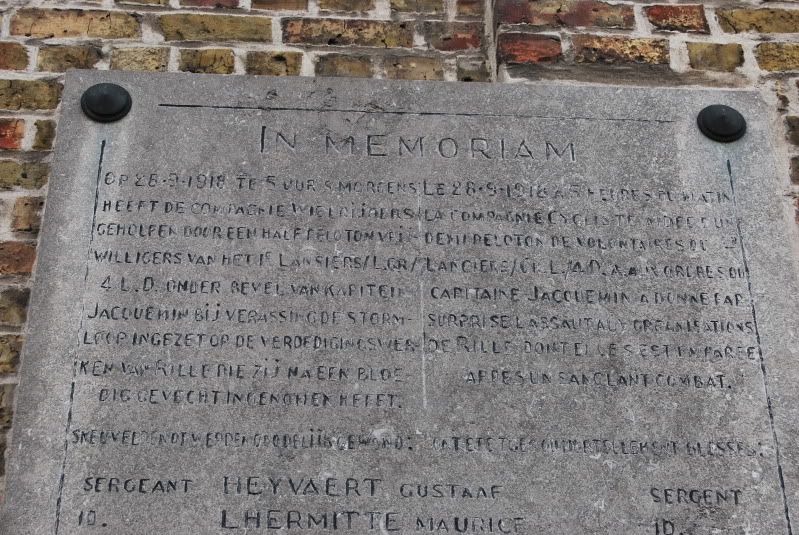 IN MEMORIAM
OP 28·9·1918 TE 5 UUR S MORGENS
HEEFT DE COMPAGNIE WIELRIJDERS
GEHOLPEN DOOR EEN HALF PELOTON VRIJ-
WILLIGERS VAN HET 1e LANSIERS/L.GR/
4 L.D. ONDER BEVEL VAN KAPITEIN
JACQUEMIN BIJ VERASSING DE STORM-
LOOP INGEZET OP DE VERDEDIGINGSWER-
KEN VAN RILLE DIE ZIJ NA EEN BLOE-
DIG GEVECHT INGENOMEN HEEFT.
LE 28·9·1918 A 5 HEURES DU MATIN
LA COMPAGNIE CYCLISTE AIDEE D'UN
DEMI PELOTON DE VOLONTAIRES DU
LANCIERS AUX ORDRES DU
CAPITAINE JACQUEMIN A DONNE PAR
SURPRISE L ASSAUT AUX ORGANISATIONS
DE RILLE DONT ELLE S EST EMPAREE
APRES UN SANGLANT COMBAT.
SNEUVELDEN OF WERDEN DODELIJK GEWOND:
ONT ETE TUES OU MORTELLEMENT BLESSES:
SERGEANT HEYVAERT GUSTAAF SERGENT
ID. LHERMITTE MAURICE ID.